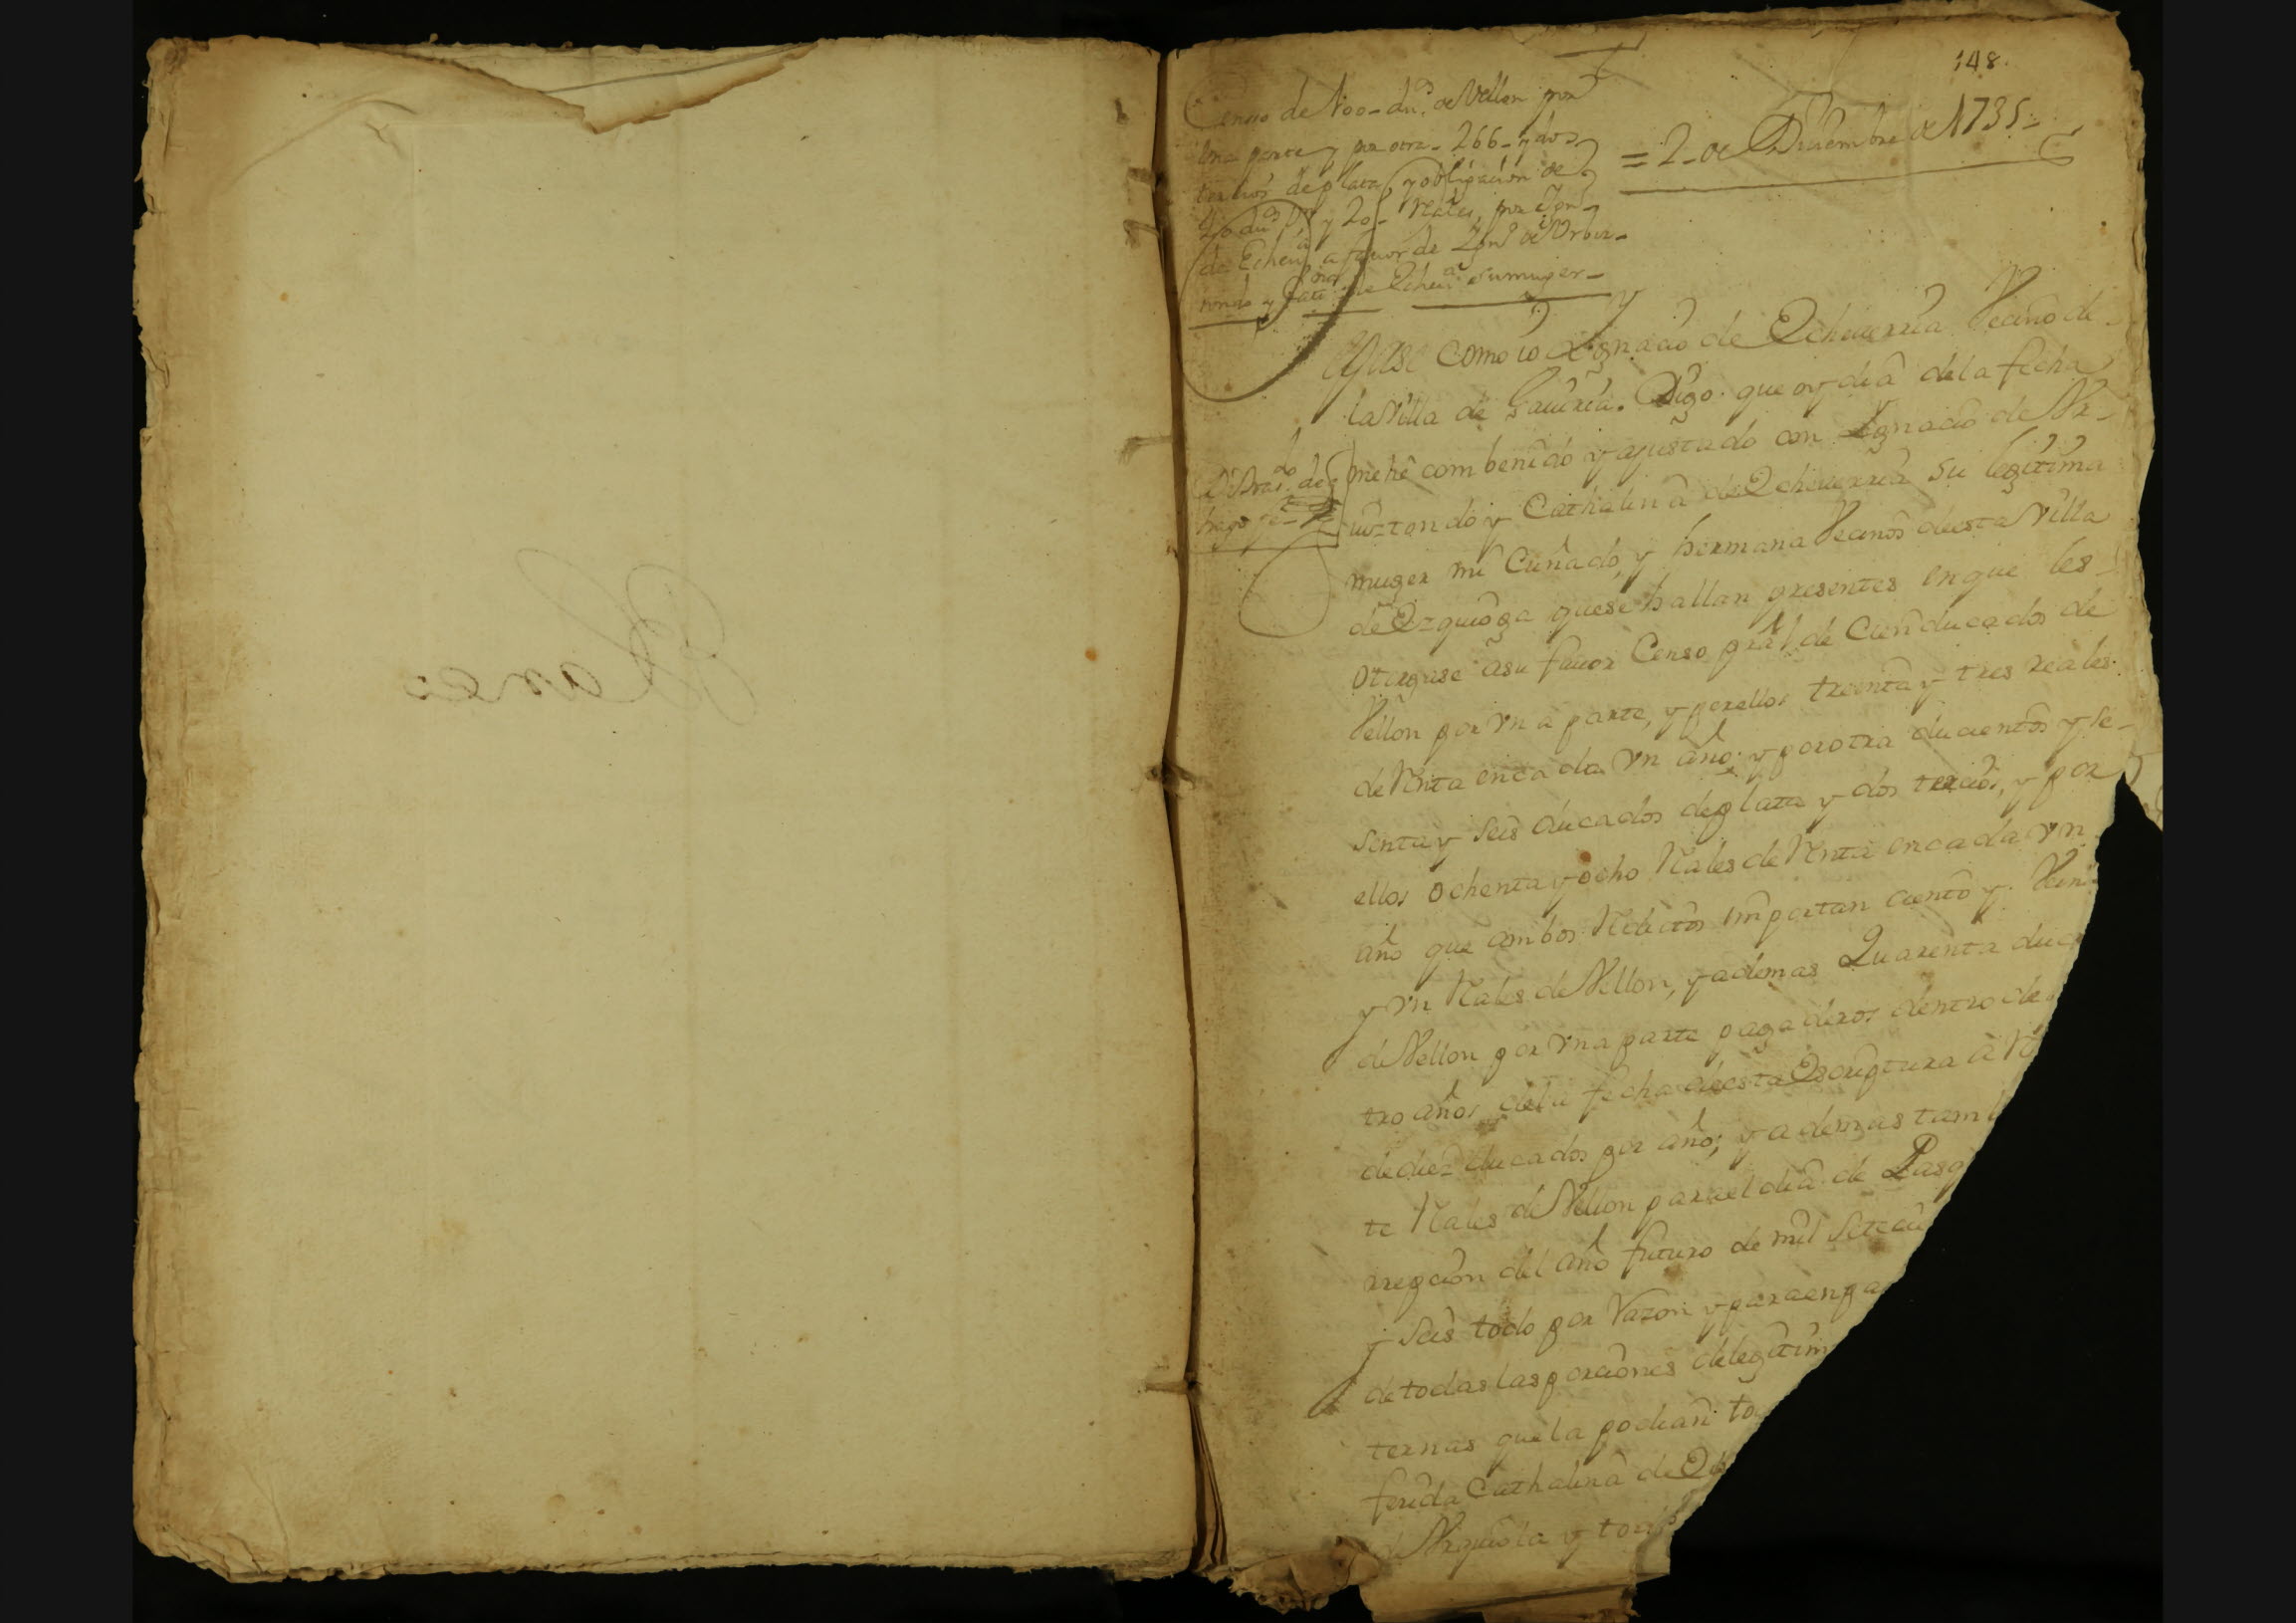 148.
Censo de 100 du.s de Vellon por
Una parte y por otra 266 y dos
tercios de plata, y obligacion de
40 du.s y 20 Reales, por Ign.o
de Echeu.a a favor de Ign.o de Urbiz-
tondo y Cat.na de Echeu.a su muger
= 2 de Diciembre de 1735
Sepase como io Ygnacio de Echeuerria Vecino de
la Villa de Gauiria. Digo que oy dia de la fecha
me he combenido y ajustado con Ygnacio de Ur-
uiztondo y Cathalina de Echeuerria su legitima
muger mi Cuñado, y hermana Vecinos de esta Villa
de Ezquioga que se hallan presentes en que les
otorgase a su fauor Censo pral de Cien ducados de
Vellon por vna parte, y por ellos treinta y tres reales
de Renta en cada vn año; y por otra ducientos y se-
senta y seis ducados de plata y dos tercios, y por
ellos ochenta y ocho Reales de Renta en cada vn
año que ambos Reditos importan ciento y Vein
y vn Reales de Vellon, y ademas Quarenta duca
de Vellon por vna parte pagaderos dentro de
tro años de la fecha de esta Escriptura a R
de diez ducados por año; y ademas tamb
te Reales de Vellon para el dia de Pasq
rrepcion del año futuro de mil Setecie
y Seis todo por Razon y para en pa
de todas las porciones de legitim
ternas que la podian to
ferida Cathalina de Ech
de Urquiola y tod